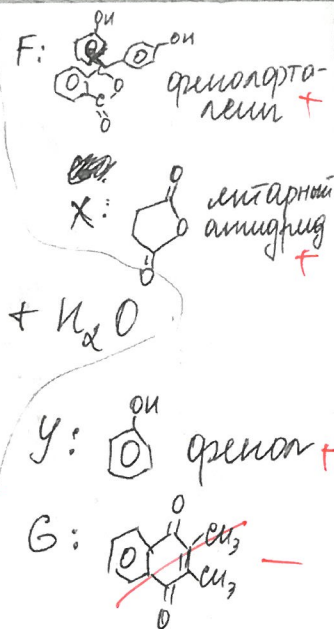 F:
OH
OH
O
C
O
фенолфта-
леин +
X:
O
O
O
янтарный
ангидрид
+
+ H₂O
OH
У: фенол +
G:
O
CH₃
CH₃
O
−